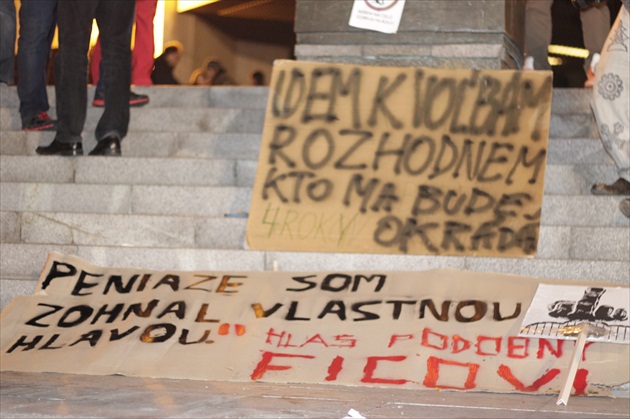 IDEM K VOĽBÁM
ROZHODNEM
KTO MA BUDE
4 ROKY OKRÁDAŤ
PENIAZE SOM
ZOHNAL VLASTNOU
HLAVOU."
HLAS PODOBNÝ
FICOVI